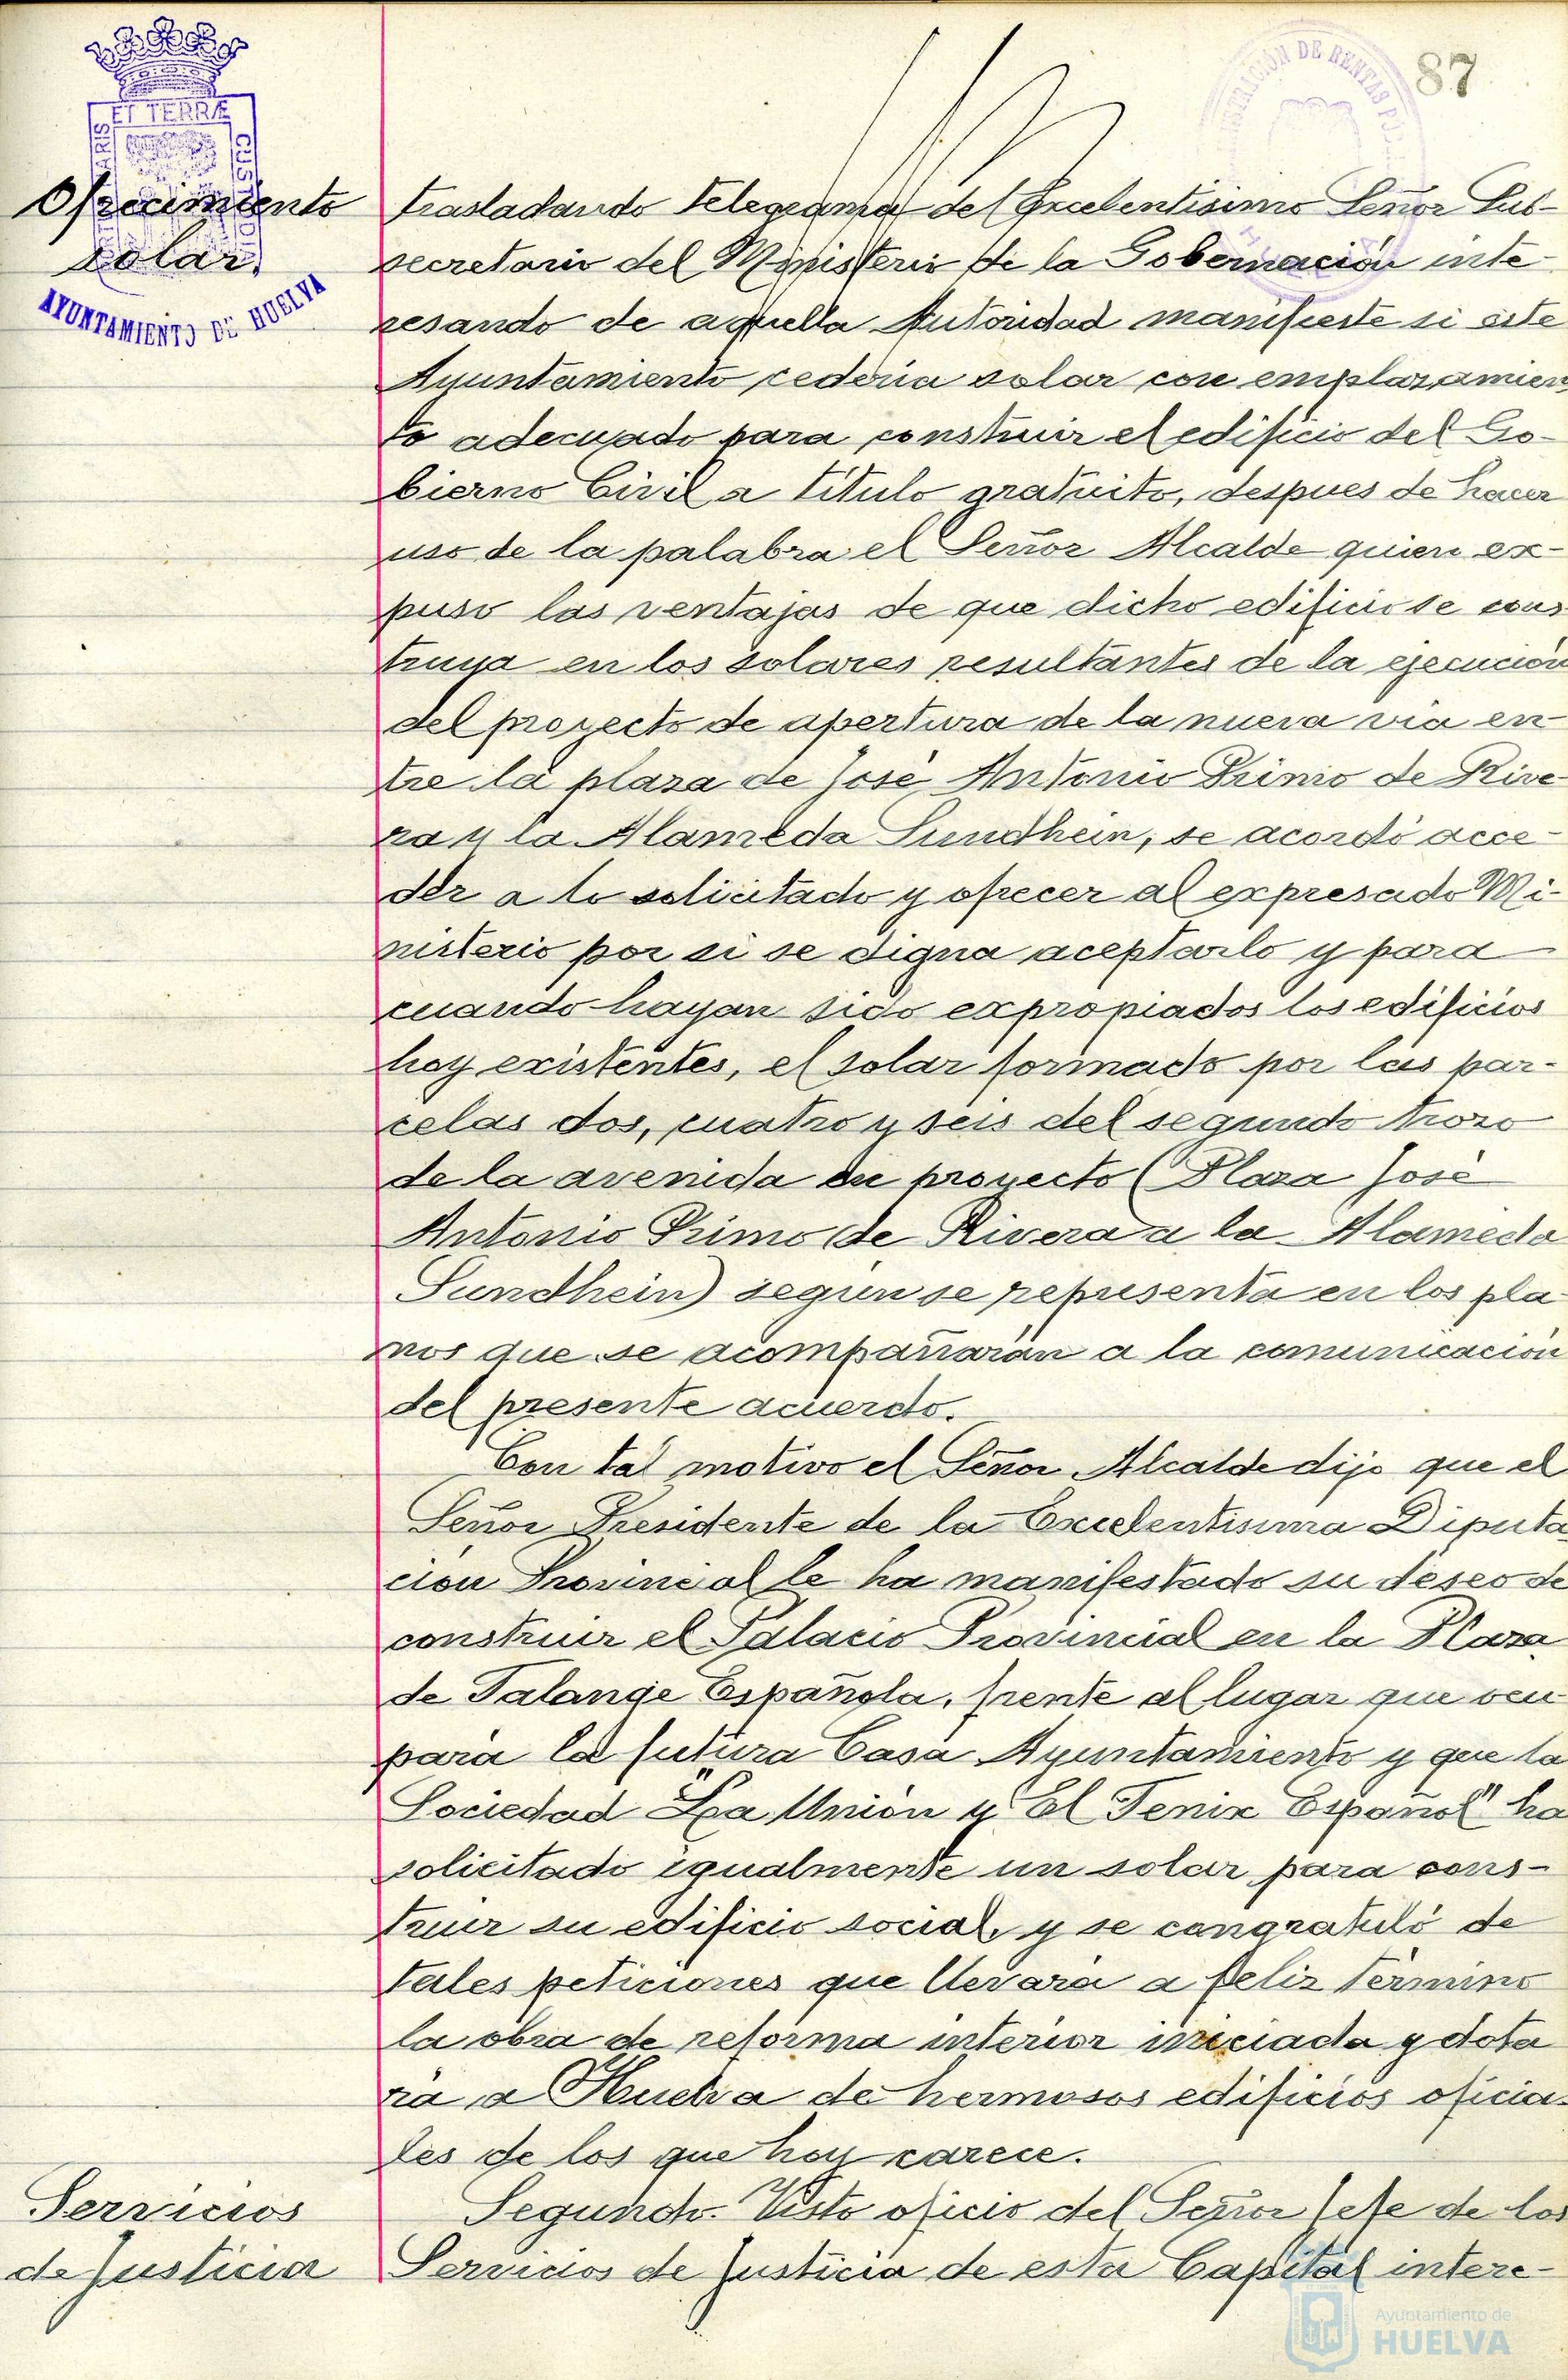 87
ET TERRÆ
ARIS
CUS
ISTRACIÓN DE RENTAS P
Ofrecimiento
solar,
AYUNTAMIENTO DE HUELVA
trasladando telegrama del Excelentisimo Señor Sub-
secretario del Ministerio de la Gobernación inte-
resando de aquella Autoridad manifieste si este
Ayuntamiento cederia solar con emplazamien
to adecuado para construir el edificio del Go-
bierno Civil a titulo gratuito, despues de hacer
uso de la palabra el Señor Alcalde quien ex-
puso las ventajas de que dicho edificio se cons
truya en los solares resultantes de la ejecución
del proyecto de apertura de la nueva via en-
tre la plaza de José Antonio Primo de Rive-
ra y la Alameda Sundhein, se acordó acce-
der a lo solicitado y ofrecer al expresado Mi-
nisterio por si se digna aceptarlo y para
cuando hayan sido expropiados los edificios
hoy existentes, el solar formado por las par-
celas dos, cuatro y seis del segundo trozo
de la avenida en proyecto (Plaza José
Antonio Primo de Rivera a la Alameda
Sundhein) según se representa en los pla
nos que se acompañarán a la comunicación
del presente acuerdo.
Con tal motivo el Señor Alcalde dijo que el
Señor Presidente de la Excelentisima Diputa
ción Provincial le ha manifestado su deseo de
construir el Palacio Provincial en la Plaza
de Falange Española, frente al lugar que ocu
para la futura Casa Ayuntamiento y que la
Sociedad "La Unión y El Fenix Español" ha
solicitado igualmente un solar para cons-
truir su edificio social, y se congratuló de
tales peticiones que llevará a feliz término
la obra de reforma interior iniciada y dota
rá a Huelva de hermosos edificios oficia-
les de los que hoy carece.
Servicios
de Justicia
Segundo. Visto oficio del Señor Jefe de los
Servicios de Justicia de esta Capital intere-
Ayuntamiento de
HUELVA